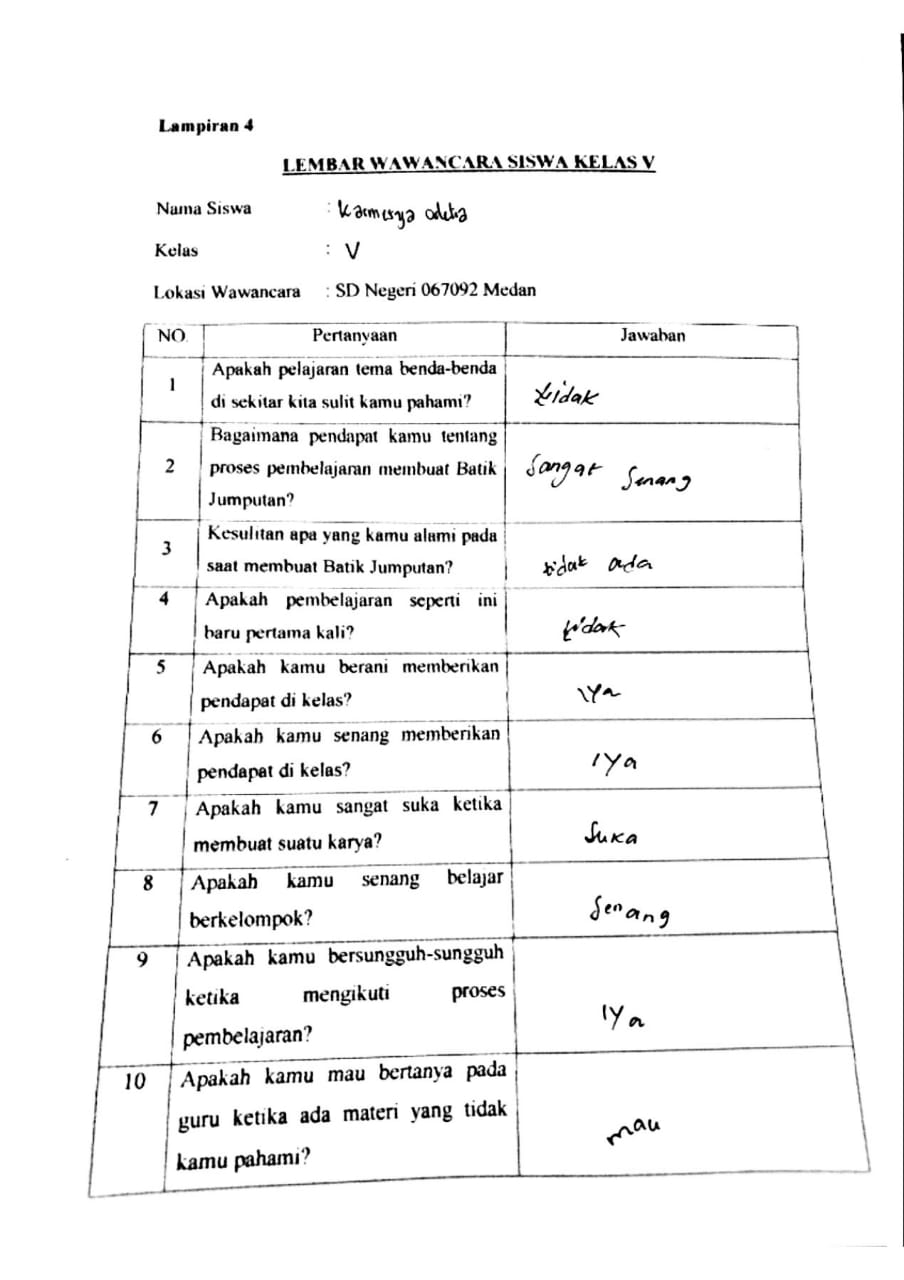 Lampiran 4
LEMBAR WAWANCARA SISWA KELAS V
Nama Siswa :
Kelas : V
Lokasi Wawancara : SD Negeri 067092 Medan
NO. Pertanyaan Jawaban
1 Apakah pelajaran tema benda-benda
di sekitar kita sulit kamu pahami? tidak
Bagaimana pendapat kamu tentang
2 proses pembelajaran membuat Batik Sangat Senang
Jumputan?
3 Kesulitan apa yang kamu alami pada
saat membuat Batik Jumputan? tidak ada
4 Apakah pembelajaran seperti ini
baru pertama kali? tidak
5 Apakah kamu berani memberikan
pendapat di kelas? iya
6 Apakah kamu senang memberikan
pendapat di kelas? iya
7 Apakah kamu sangat suka ketika
membuat suatu karya? Suka
8 Apakah kamu senang belajar
berkelompok? Senang
9 Apakah kamu bersungguh-sungguh
ketika mengikuti proses
pembelajaran? iya
10 Apakah kamu mau bertanya pada
guru ketika ada materi yang tidak
kamu pahami? mau